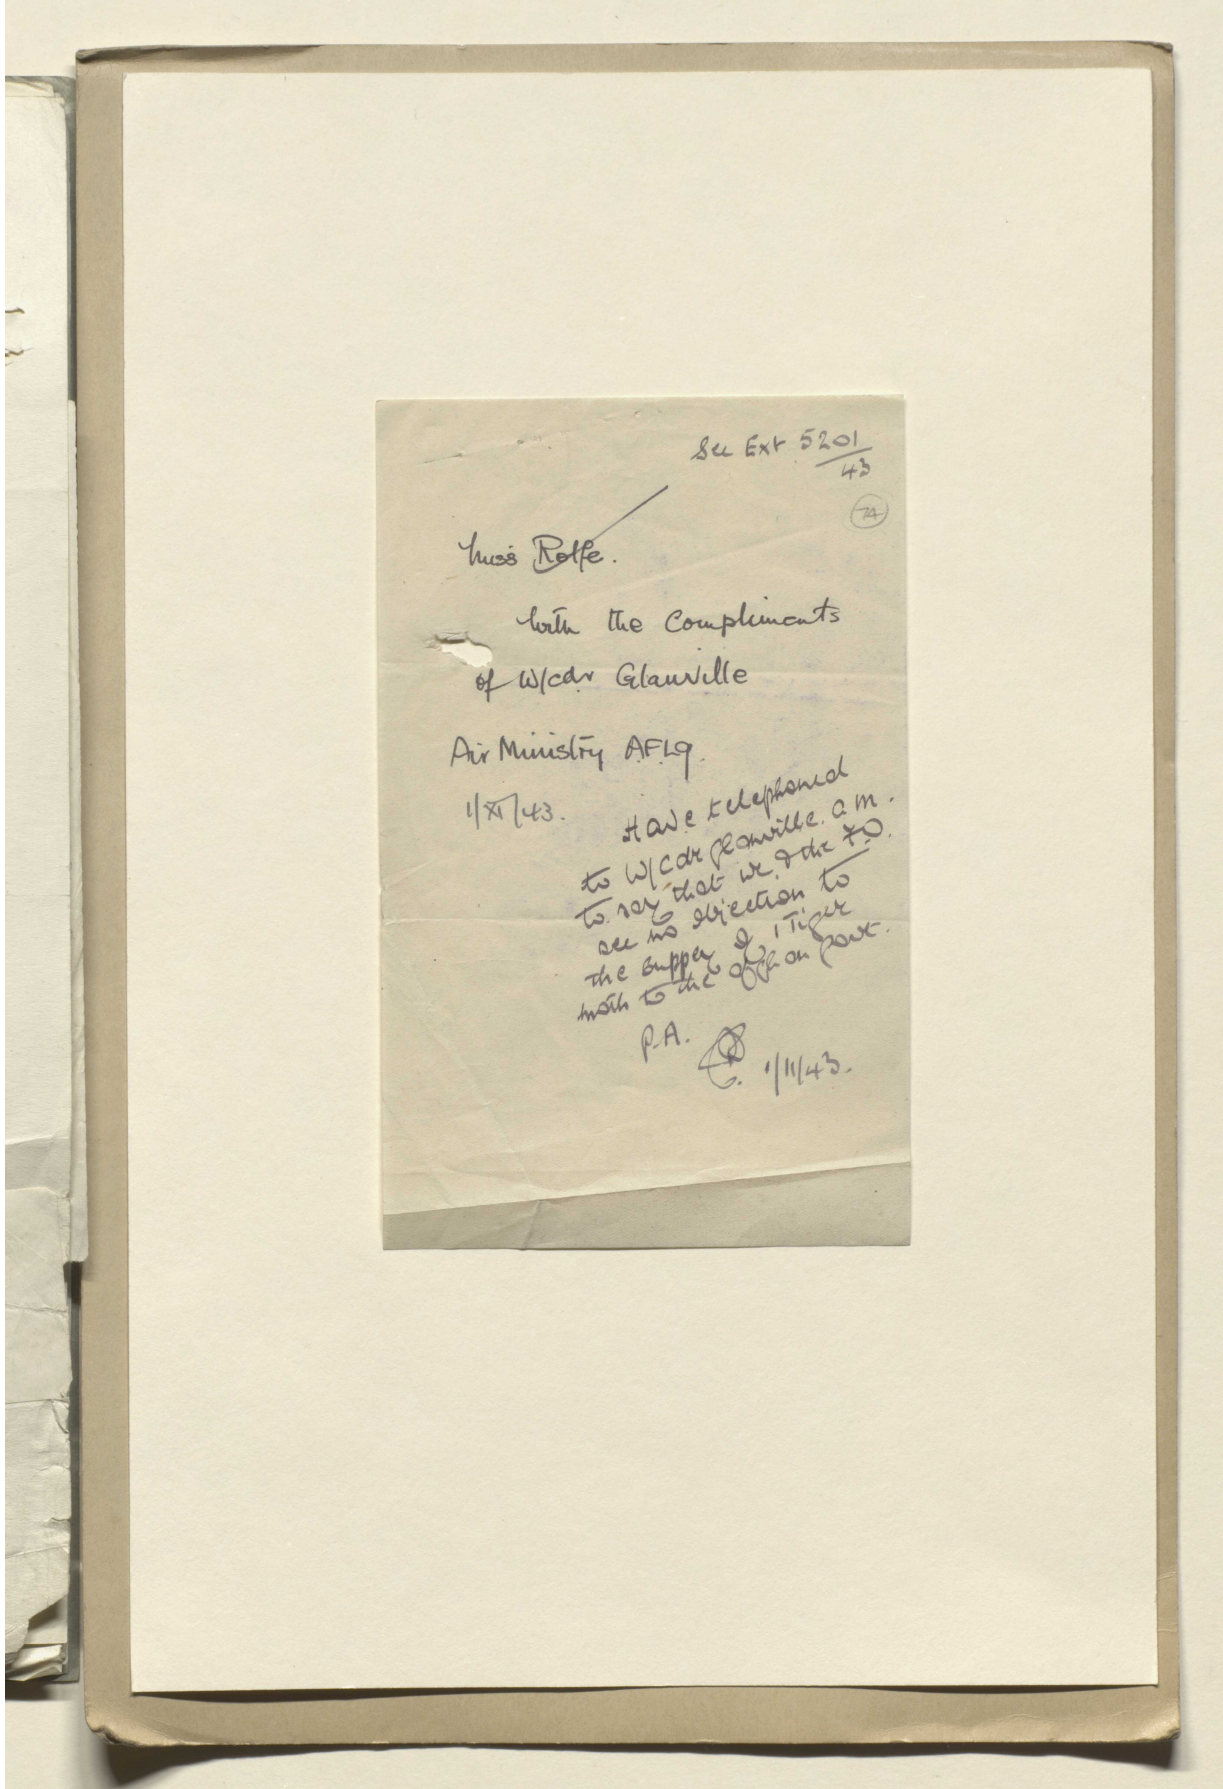 See Ext 5201
43
74
Miss Rolfe.
With the Compliments
of W/cdr Glanville
Air Ministry A.F.L9.
1/XI/43.
Have telephoned
to W/Cdr Glanville. a.m.
to say that we & the F.O.
see no objection to
the supply of 1 Tiger
moth to the Afghan Govt.
P.A.
1/11/43.